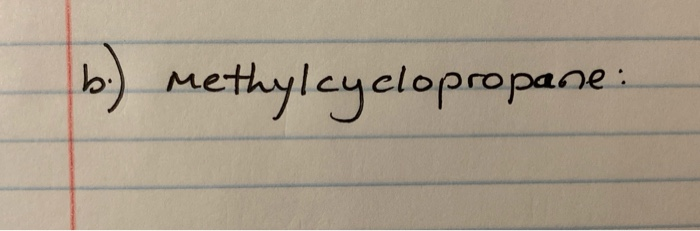 b.) Methylcyclopropane: